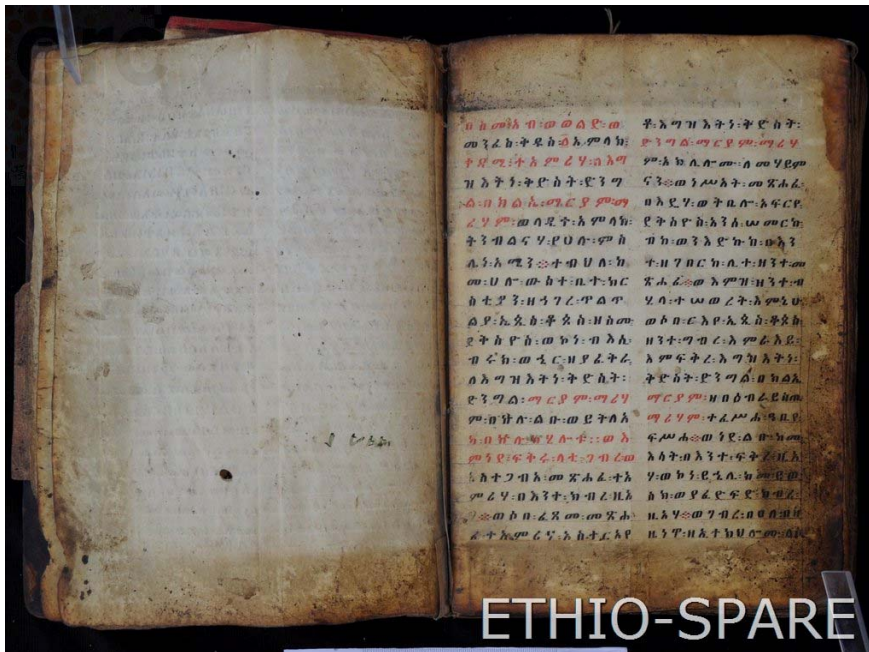 በስመ፡አብ፡ወወልድ፡ወ
መንፈስ፡ቅዱስ፡፩አምላክ፡
ቀዳሚ፡ተአምሪሃ፡ለእግ
ዝእትነ፡ቅድስት፡ድንግ
ል፡በክልኤ፡ማርያም፡ማ
ሪሃም፡ወላዲተ፡አምላክ፡
ትንብልናሃ፡የሀሉ፡ምስ
ሌነ፡አሜን፡፡ተብህለ፡ከ
መ፡ሀሎ፡ውስተ፡ቤተ፡ክር
ስቲያን፡ዘኃገረ፡ጥልጥ
ልያ፡ኤጲስ፡ቆጶስ፡ዘስሙ
ደቅስዮስ፡ወኮነ፡ብእሲ፡
ብሩክ፡ወኄር፡ዘያፈቅራ
ለእግዝእትነ፡ቅድስት፡
ድንግል፡ማርያም፡ማሪሃ
ም፡በኵሉ፡ልቡ፡ወይትለአ
ካ፡በኵሉ፡ኃይሉ፡፡ወእ
ምነደ፡ፍቅሩ፡ላቲ፡ጋብረወ
አስተጋብአ፡መጽሐፈ፡ተአ
ምሪሃ፡በእንተ፡ክብረ፡ዚአ
ሃ፡፡ወሶበ፡ፈጸመ፡መጽሐ
ፈ፡ተአምሪሃ፡አስተርአየ
ቶ፡እግዝእትነ፡ቅድስት፡
ድንግል፡ማርያም፡ማሪሃ
ም፡አክሊሎሙ፡ለመሃይም
ናን፡፡ወነሥአት፡መጽሐፈ፡
በእዴሃ፡ወትቤሎ፡አፍርየ
ደቅስዮስ፡አንሰ፡ሠመርኩ
ብከ፡ወንእድኩከ፡በእን
ተ፡ዘገበርከ፡ሊተ፡ዘንተ፡መ
ጽሐፈ፡፡ወእምዝ፡ዘንተ፡ብ
ሂላ፡ተሠወረት፡እምኔሁ
ወሶበ፡ርእየ፡ኤጲስ፡ቆጶስ፡
ዘንተ፡ግብረ፡አምራእይ፡
እምፍቅረ፡እግዝእትነ፡
ቅድስት፡ድንግል፡በክልኤ
ማርያም፡ዘበዕብራይስጡ
ማሪሃም፡ተፈሥሐ፡ዓቢየ
ፍሥሐ፡፡ወነደ፡ልቡ፡ከመ
እሳት፡በእንተ፡ፍቅረ፡ዚአ
ሃ፡ወኮነ፡ይኄሊ፡ከመ፡ይወ
ስክ፡ወያፈድፍድ፡ክብረ፡
ዚአሃ፡፡ወገብረ፡በዐለ፡ዘ
ETHIO-SPARE